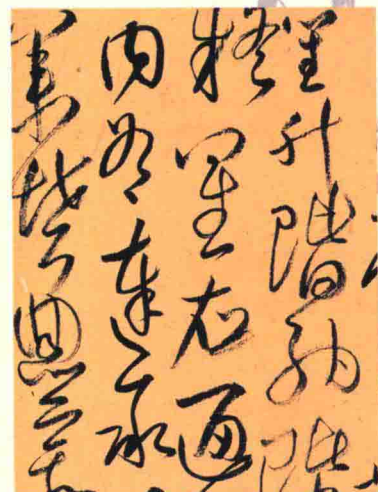 笙升階納陛
疑星右通
內左達承
集墳典亦